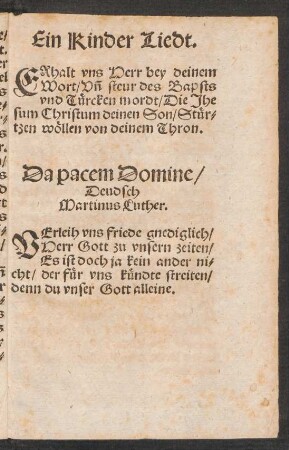 Ein Kinder Liedt.
ERhalt vns Herr bey deinem
Wort/ Vñ steur des Bapsts
vnd Türcken mordt/ Die Jhe
sum Christum deinen Son/ Stür-
tzen wöllen von deinem Thron.
Da pacem Domine/
Deudsch
Martinus Luther.
VErleih vns friede gnediglich/
Herr Gott zu vnsern zeiten/
Es ist doch ja kein ander ni-
cht/ der für vns kündte streiten/
denn du vnser Gott alleine.